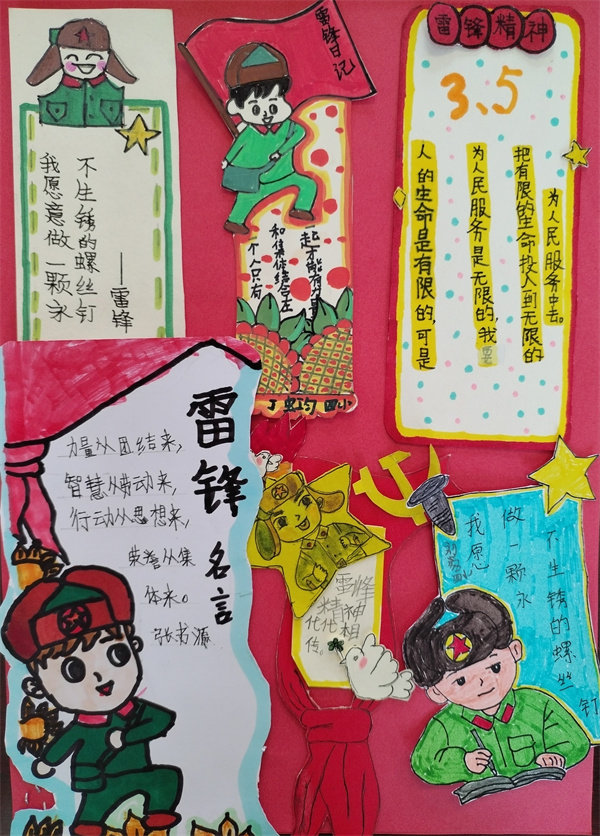 我愿意做一颗永
不生锈的螺丝钉
——雷锋
雷锋日记
个人只有
和集体结合在
起才能有力量
雷锋精神
3、5
人的生命是有限的,可是
为人民服务是无限的,我要
把有限的生命投入到无限的
为人民服务中去。
雷锋名言
力量从团结来,
智慧从劳动来,
行动从思想来,
荣誉从集
体来。
张书源
雷烽
精神相
代代
传。
我愿
做一颗永
不生锈的螺丝钉